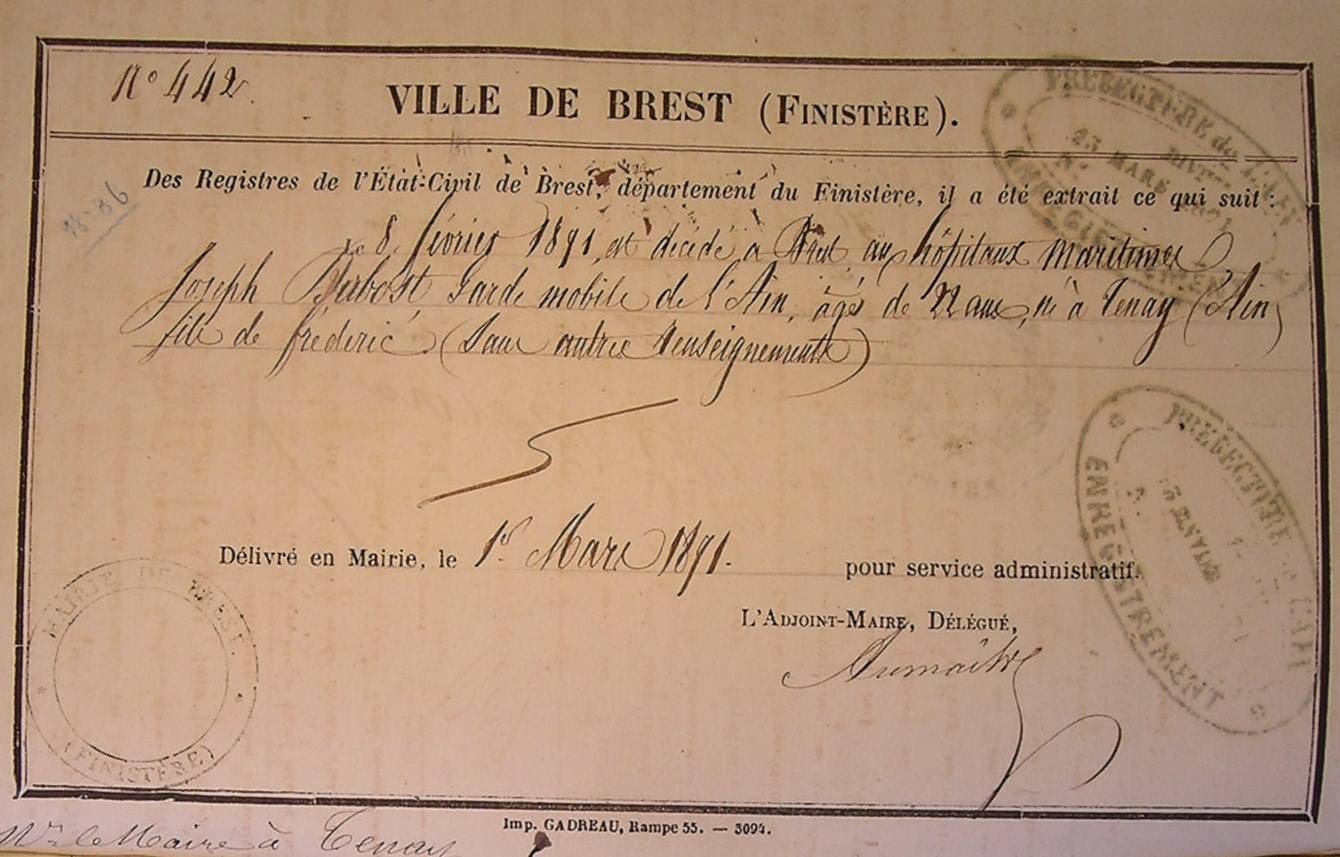 N° 442.
VILLE DE BREST (FINISTÈRE).
Des Registres de l'État-Civil de Brest, département du Finistère, il a été extrait ce qui suit :
18-86
Le 8 février 1891, est décédé à Brest aux hôpitaux maritimes
Joseph Dubost Garde mobile de l'Ain, âgé de 22 ans, né à Tenay (Ain)
fils de frédéric (Sans autres renseignements)
Délivré en Mairie, le 1er Mars 1891. pour service administratif.
L'ADJOINT-MAIRE, DÉLÉGUÉ,
MAIRIE DE BREST
(FINISTÈRE)
PREFECTURE de L'AIN
23 MARS
ENREGISTREMENT
PREFECTURE L'AIN
ENREGISTREMENT
Imp. GADREAU, Rampe 55. — 3094.
Mr le Maire à Tenay